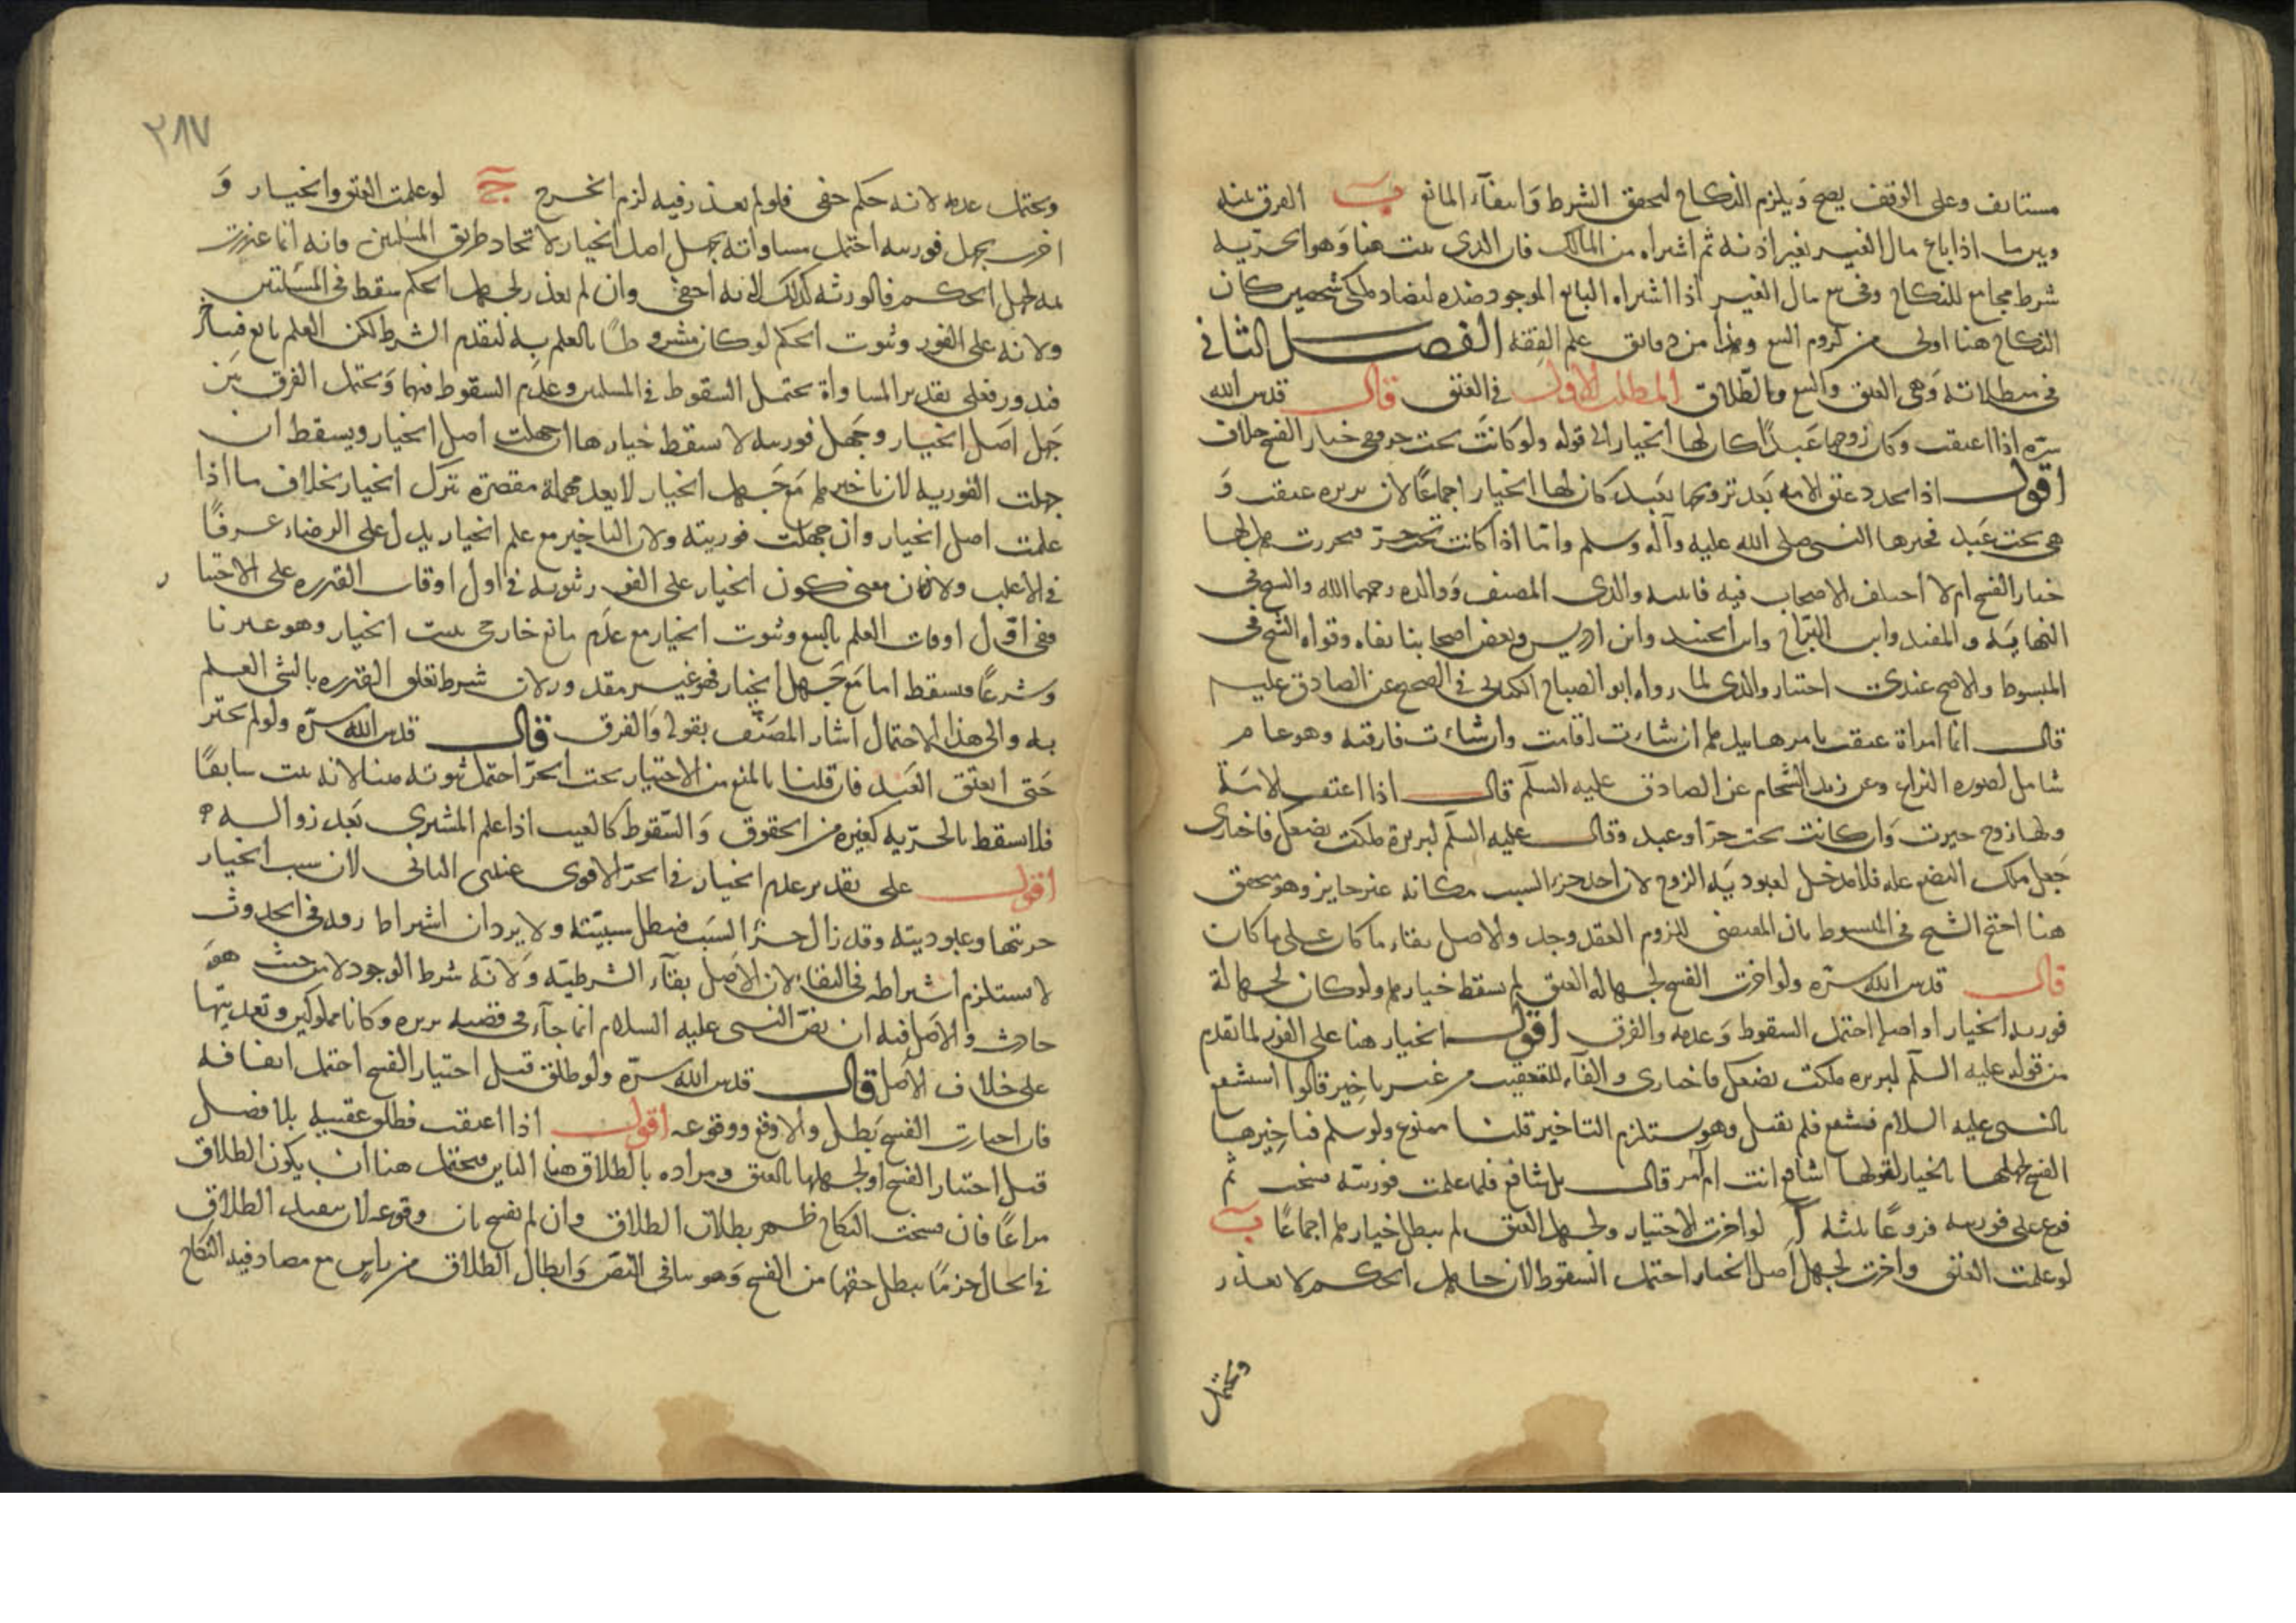 مستانف وعلى الوقف يصح ويلزم النكاح لتحقق الشرط وانتفآء المانع ب الفرق بينه
وبين ما اذا باع مال الغير بغير اذنه ثم اشتراه من المالك فان الذى يثبت هنا وهو الحرّيه
شرط مجامع للنكاح وفى بيع مال الغير اذا اشتراه البايع الموجود ضده لتضاد ملكى شخصين كان
النكاح هنا اولى من لزوم البيع وهذا من دقايق علم الفقه الفصل الثانى
فى مبطلاته وهى العتق والبيع والطّلاق المطلب الاول فى العتق قال قدس الله
سرّه اذا اعتقت وكان زوجها عبدًا كان لها الخيار الى قوله ولو كانت تحت حر ففى خيار الفسخ خلاف
اقول اذا تجدد عتق الامه بعد تزويجها بعبد كان لها الخيار اجماعًا لان بريره عتقت و
هى تحت عبد فخيرها النبى صلى الله عليه وآله وسلم وامّا اذا كانت تحت حرّ فحررت فهل لها
خيار الفسخ ام لا اختلف الاصحاب فيه فاثبته والدى المصنف ووالده رحمهما الله والشيخ فى
النهايه والمفيد وابن البرّاج وابن الجنيد وابن ادريس وبعض اصحابنا نفاه وقواه الشيخ فى
المبسوط والاصح عندى اختيار والدى لما رواه ابو الصباح الكنانى فى الصحيح عن الصادق عليه
قال ايما امراة عتقت فامرها بيدها ان شاءت اقامت وان شاءت فارقته وهو عام
شامل لصوره النزاع وعن زيد الشحام عن الصادق عليه السلم قال اذا اعتقت الامة
ولها زوج خيرت وان كانت تحت حرّ او عبد وقال عليه السلم لبريرة ملكت بضعك فاختارى
جعل ملك البضع عله فلا مدخل لعبوديّه الزوج لان اخذ جزء السبب مكانه غير جايز وهو متحقق
هنا احتج الشيخ فى المبسوط بان المقتضى للزوم العقد وجد والاصل بقاء ما كان على ما كان
قال قدس الله سرّه ولو اخرت الفسخ لجهاله العتق لم يسقط خيارها ولو كان لجهالة
فوريه الخيار او اصله احتمل السقوط وعدمه والفرق اقول الخيار هنا على الفور لما تقدم
من قوله عليه السلم لبريره ملكت بضعك فاختارى والفآء للتعقيب من غير تاخير قالوا استشفع
بالنبى عليه السلام فشفع فلم تقبل وهو يستلزم التاخير قلنا ممنوع ولو سلم فتاخيرها
الفسخ لجهلها بالخيار لقولها اشافع انت ام آمر قال بل شافع فلما علمت فوريته فسخت ثم
فرع على فوريته فروعًا ثلثه آ لو اخرت الاختيار ولجهل العتق لم يبطل خيارها اجماعًا ب
لو علمت العتق واخرت لجهل اصل الخيار احتمل السقوط لان جاهل الحكم لا يعذر
ويحتمل
٢٨٧
ويحتمل عدمه لانه حكم خفى فلو لم يعذر فيه لزم الحرج ج لو علمت العتق والخيار و
اخرت بجهل فوريته احتمل مساواته بجهل اصل الخيار لاتحاد طريق المسئلتين فانه انما عذرت
لجهل الحكم فالوريثه كذلك لانه اخفى وان لم يعذر لجهل الحكم سقط فى المسئلتين
ولانه على الفور وثبوت الحكم لو كان مشروطًا بالعلم به لتقدم الشرط لكن العلم تابع فيتاخر
فيدور فعلى تقدير المساواة يحتمل السقوط فى المسئلتين وعدم السقوط فيهما ويحتمل الفرق بين
جهل اصل الخيار وجهل فوريته لا سقط خيارها ان جهلت اصل الخيار ويسقط ان
جهلت الفوريه لان تاخيرها مع جهل الخيار لا يعد مهملة مقصرة بترك الخيار بخلاف ما اذا
علمت اصل الخيار وان جهلت فوريته ولان التاخير مع علم الخيار يدل على الرضاء عرفًا
فى الاغلب ولان معنى كون الخيار على الفور ثبوته فى اول اوقات القدره على الاختيار
ففى اوّل اوقات العلم بالبيع وثبوت الخيار مع عدم مانع خارجى يثبت الخيار وهو عذرنا
وشرعًا فيسقط اما مع جهل الخيار فهو غير مقدور لان شرط تعلق القدره بالشى العلم
به والى هذا الاحتمال اشار المصنّف بقوله والفرق قال قدس الله سرّه ولو لم تختر
حتى اعتق العبد فان قلنا بالمنع من الاختيار تحت الحرّ احتمل ثبوته هنا لانه يثبت سابقًا
فلا يسقط بالحرّيه كغيره من الحقوق والسّقوط كالعيب اذا علم المشترى بعد زواله
اقول على تقدير عدم الخيار فى الحرّ الاقوى عندى الثانى لان سبب الخيار
حريتها وعبوديته وقد زال جزء السبب فيبطل سببيّته ولا يرد ان اشتراط رقه فى الحدوث
لا يستلزم اشتراطه فى البقاء لان الاصل بقآء الشرطيّه ولانّه شرط الوجود لا من حيث هو
حادث والاصل فيه ان نصّ النبى عليه السلام انما جآء فى قضيه بريره وكانا مملوكين وتعديتها
على خلاف الاصل قال قدس الله سرّه ولو طلق قبل اختيار الفسخ احتمل ايقافه
فان اختارت الفسخ بطل والا وقع ووقوعه اقول اذا اعتقت فطلق عقيبه بلا فصل
قبل اختيار الفسخ او لجهلها بالعتق ومراده بالطلاق هنا الباين فيحتمل هنا ان يكون الطلاق
مراعًا فان فسخت النكاح ظهر بطلان الطلاق وان لم تفسخ بان وقوعه لان تنفيذ الطلاق
فى الحال جزمًا يبطل حقها من الفسخ وهو ينافى النصّ وابطال الطلاق من راس مع مصادفته النكاح